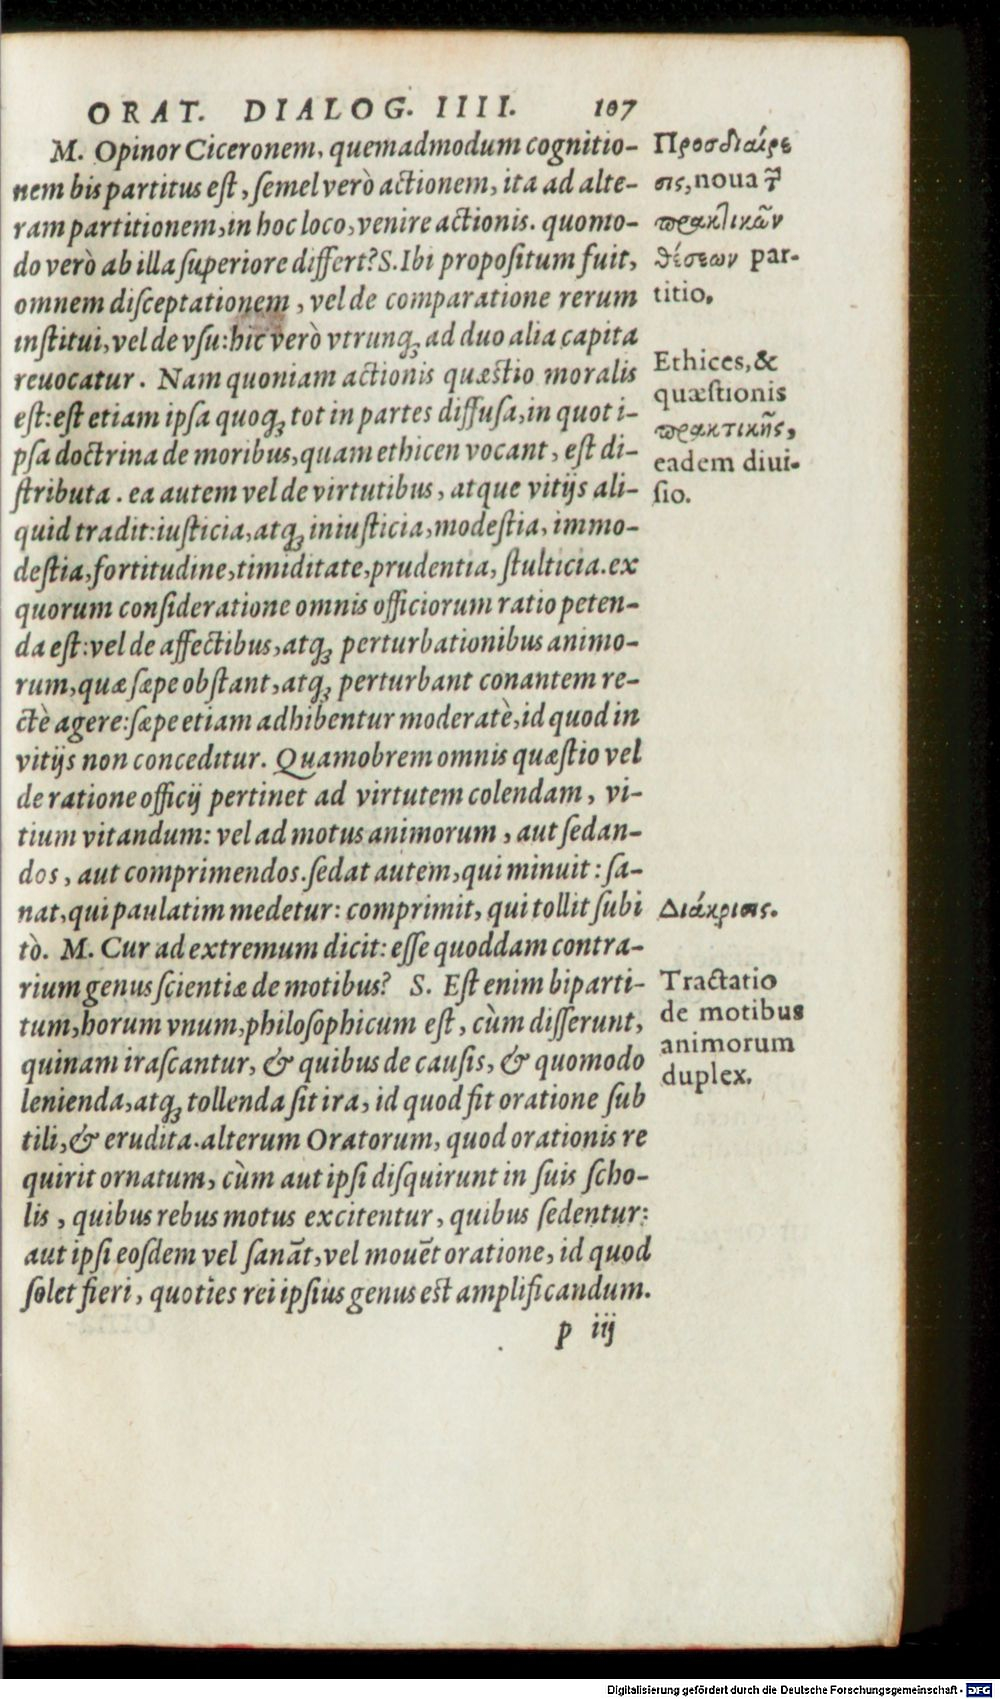 ORAT. DIALOG. IIII. 107
M. Opinor Ciceronem, quemadmodum cognitio-
nem bis partitus est, semel verò actionem, ita ad alte-
ram partitionem, in hoc loco, venire actionis. quomo-
do verò ab illa superiore differt? S. Ibi propositum fuit,
omnem disceptationem, vel de comparatione rerum
institui, vel de vsu: hic verò vtrunq; ad duo alia capita
reuocatur. Nam quoniam actionis quæstio moralis
est: est etiam ipsa quoq; tot in partes diffusa, in quot i-
psa doctrina de moribus, quam ethicen vocant, est di-
stributa. ea autem vel de virtutibus, atque vitijs ali-
quid tradit: iusticia, atq; iniusticia, modestia, immo-
destia, fortitudine, timiditate, prudentia, stulticia. ex
quorum consideratione omnis officiorum ratio peten-
da est: vel de affectibus, atq; perturbationibus animo-
rum, quæ sæpe obstant, atq; perturbant conantem re-
ctè agere: sæpe etiam adhibentur moderatè, id quod in
vitijs non conceditur. Quamobrem omnis quæstio vel
de ratione officij pertinet ad virtutem colendam, vi-
tium vitandum: vel ad motus animorum, aut sedan-
dos, aut comprimendos. sedat autem, qui minuit: sa-
nat, qui paulatim medetur: comprimit, qui tollit subi
tò. M. Cur ad extremum dicit: esse quoddam contra-
rium genus scientiæ de motibus? S. Est enim biparti-
tum, horum vnum, philosophicum est, cùm differunt,
quinam irascantur, & quibus de causis, & quomodo
lenienda, atq; tollenda sit ira, id quod fit oratione sub
tili, & erudita. alterum Oratorum, quod orationis re
quirit ornatum, cùm aut ipsi disquirunt in suis scho-
lis, quibus rebus motus excitentur, quibus sedentur:
aut ipsi eosdem vel sanãt, vel mouẽt oratione, id quod
solet fieri, quoties rei ipsius genus est amplificandum.
p iij
Προσδιαίρε
σις, noua τῶν
πρακτικῶν
θέσεων par-
titio.
Ethices, &
quæstionis
πρακτικῆς,
eadem diui-
sio.
Διάκρισις.
Tractatio
de motibus
animorum
duplex.
Digitalisierung gefördert durch die Deutsche Forschungsgemeinschaft - DFG